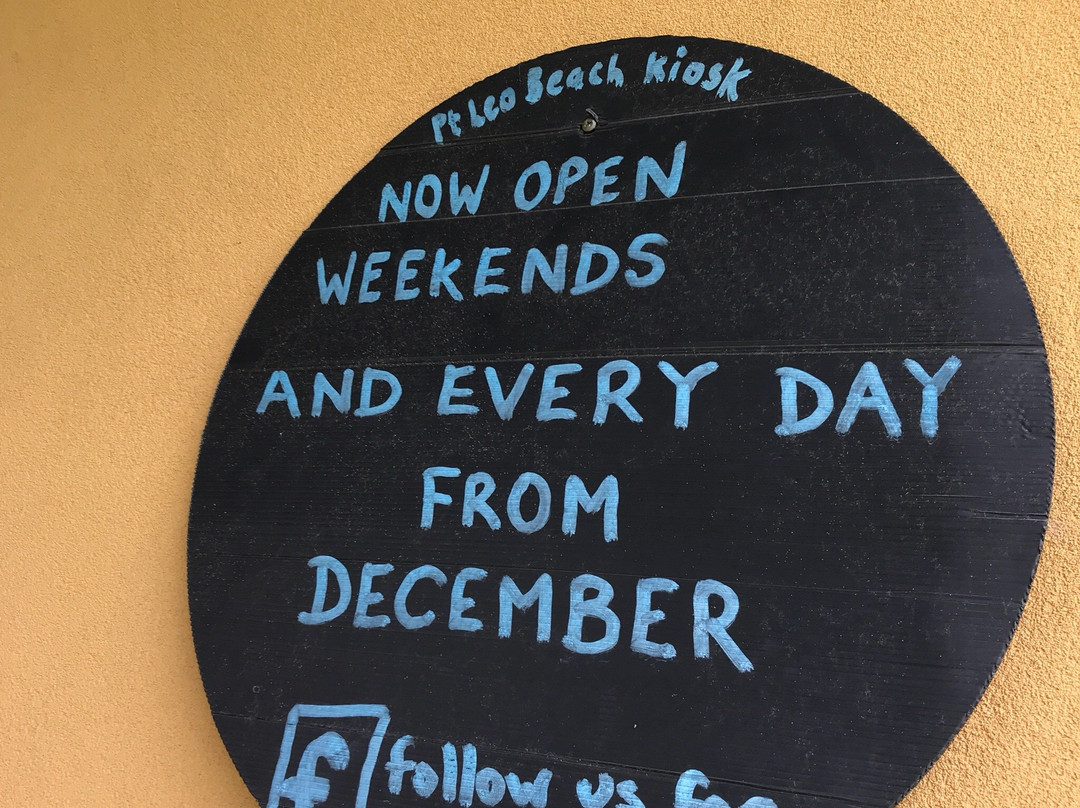 Pt Leo Beach Kiosk
NOW OPEN
WEEKENDS
AND EVERY DAY
FROM
DECEMBER
f follow us for